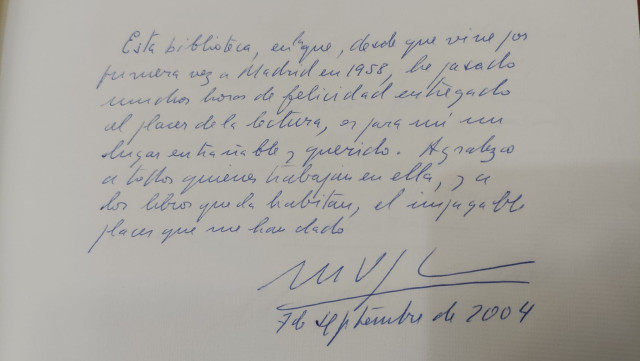 Esta biblioteca, en la que, desde que vine por
primera vez a Madrid en 1958, he pasado
muchas horas de felicidad entregado
al placer de la lectura, es para mí un
lugar entrañable y querido. Agradezco
a todos quienes trabajan en ella, y a
los libros que la habitan, el impagable
placer que me han dado
7 de septiembre de 2004